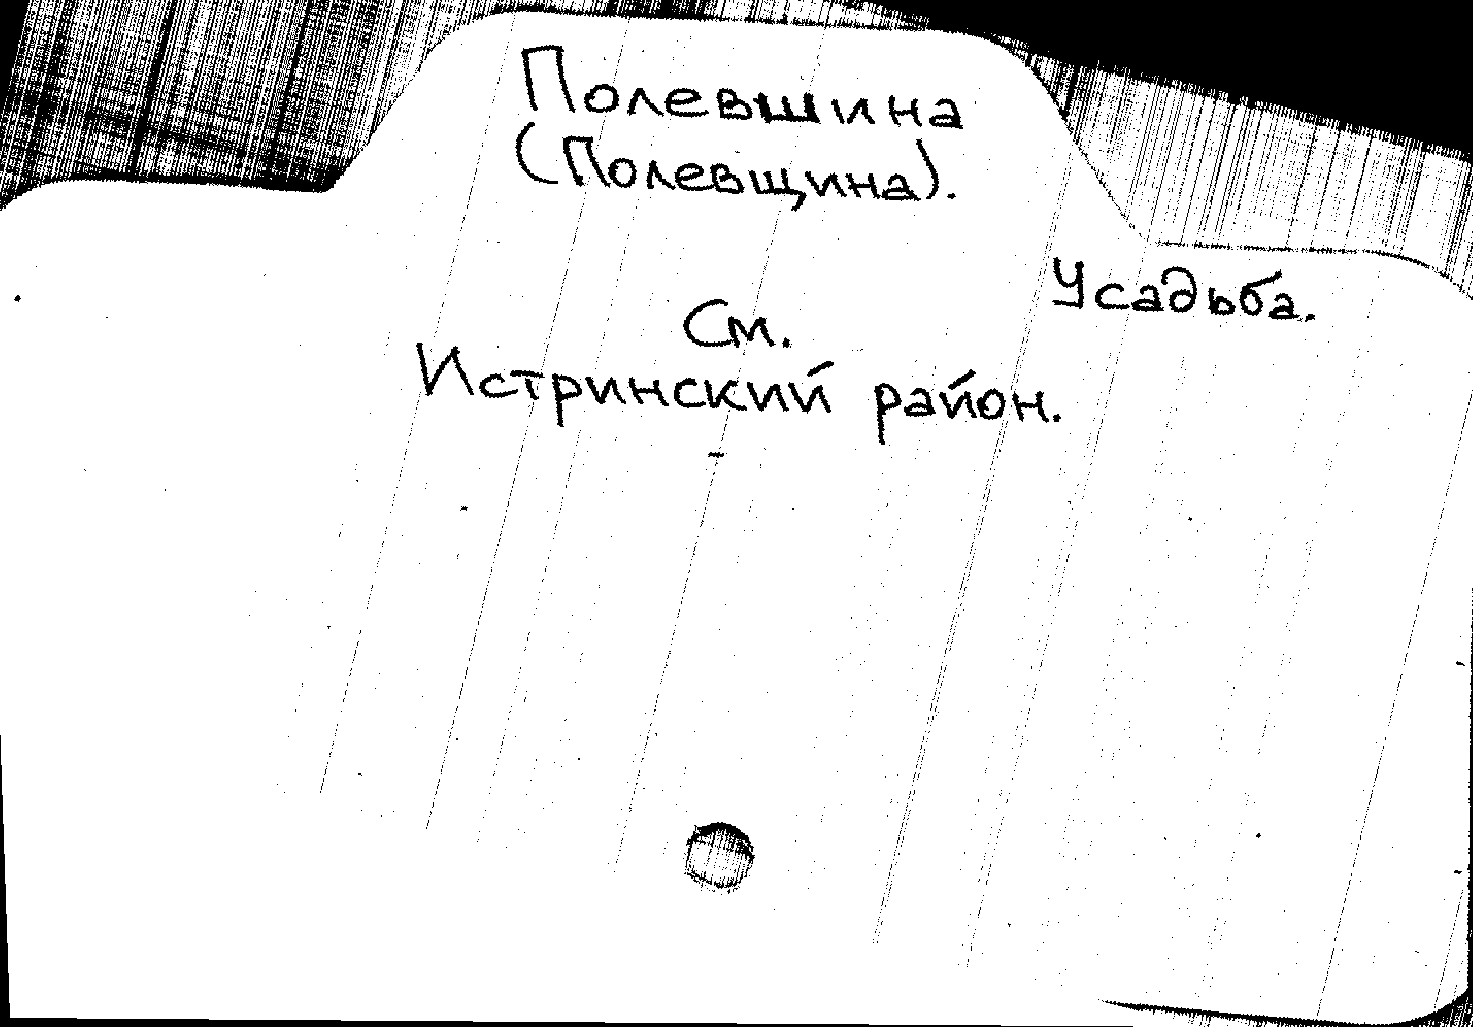 Полевшина
(Полевщина).
Усадьба.
См.
Истринский район.